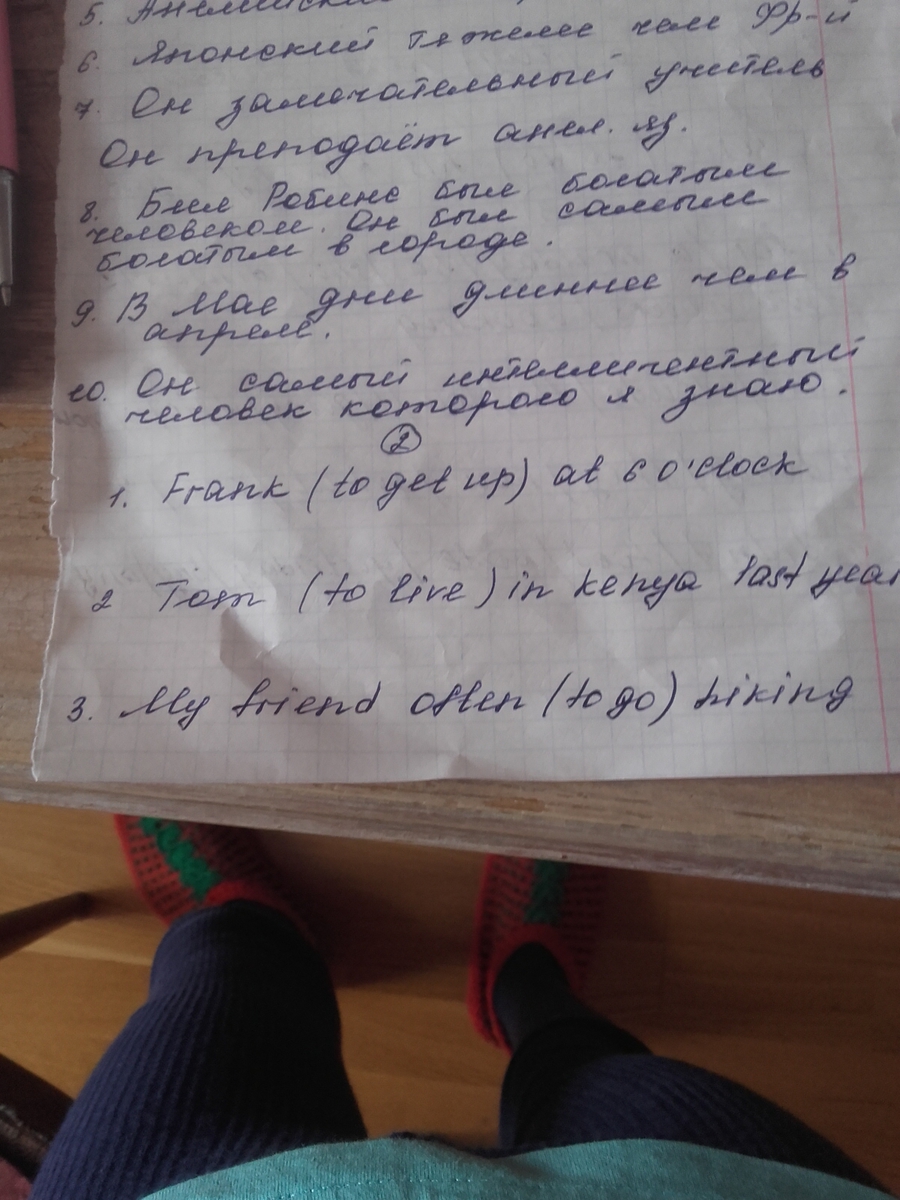 5. Английский
6. Японский тяжелее чем Фр-й
7. Он замечательный учитель
Он преподаёт англ. яз.
8. Билл Робинс был богатым
человеком. Он был самым
богатым в городе.
9. В Мае дни длиннее чем в
апреле.
10. Он самый интеллигентный
человек которого я знаю.
2
1. Frank (to get up) at 6 o'clock
2 Tom (to live) in Kenya last year
3. My friend often (to go) hiking